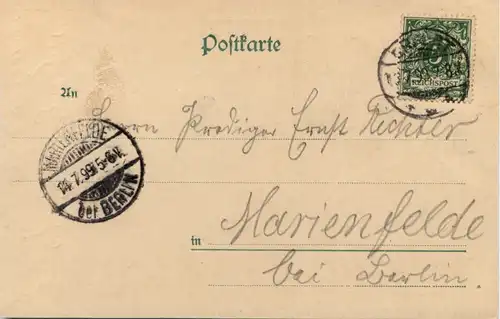 Postkarte
REICHSPOST
An
Herrn Prediger Ernst Richter
MARIENFELDE
14.7.99 5-6N.
bei BERLIN
in
Marienfelde
bei Berlin.